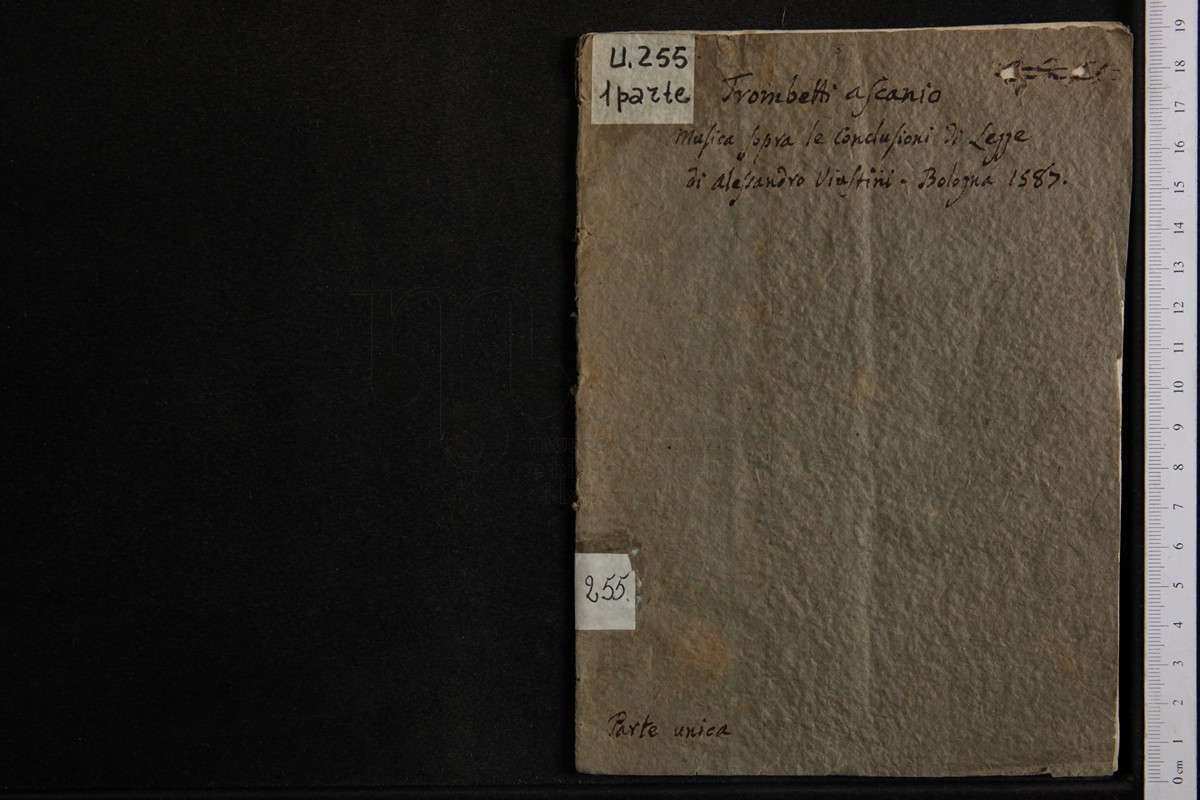 U.255
1 parte
Trombetti ascanio
Musica sopra le Conclusioni di Legge
di Alessandro Viustini - Bologna 1587.
255.
Parte unica
0 cm 1 2 3 4 5 6 7 8 9 10 11 12 13 14 15 16 17 18 19